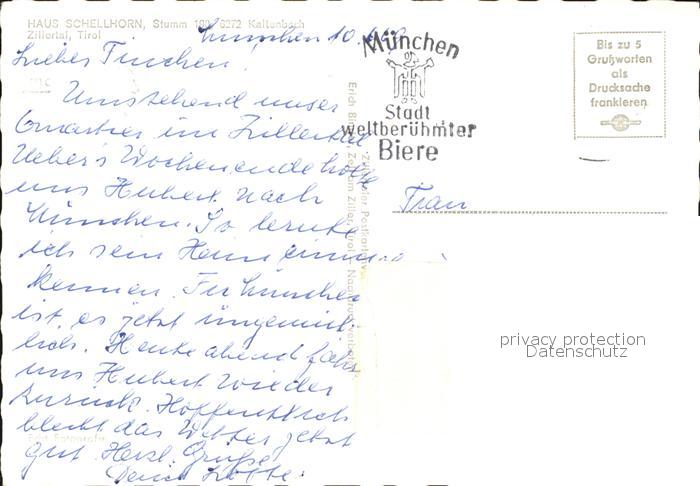 HAUS SCHELLHORN, Stumm 6272 Kaltenbach
Zillertal, Tirol
München 10.
Liebes Tinchen!
Umstehend unser
Quartier im Zillertal
Ueber's Wochenende holte
uns Hubert nach
München. So lernte
ich sein Heim einmal
kennen. In München
ist es jetzt ungemüt-
lich. Heute abend fährt
uns Hubert wieder
zurück. Hoffentlich
bleibt das Wetter jetzt
gut. Herzl. Grüße
Deine Lotte.
München
Stadt
weltberühmter
Biere
Bis zu 5
Grußworten
als
Drucksache
frankieren
Frau
privacy protection
Datenschutz